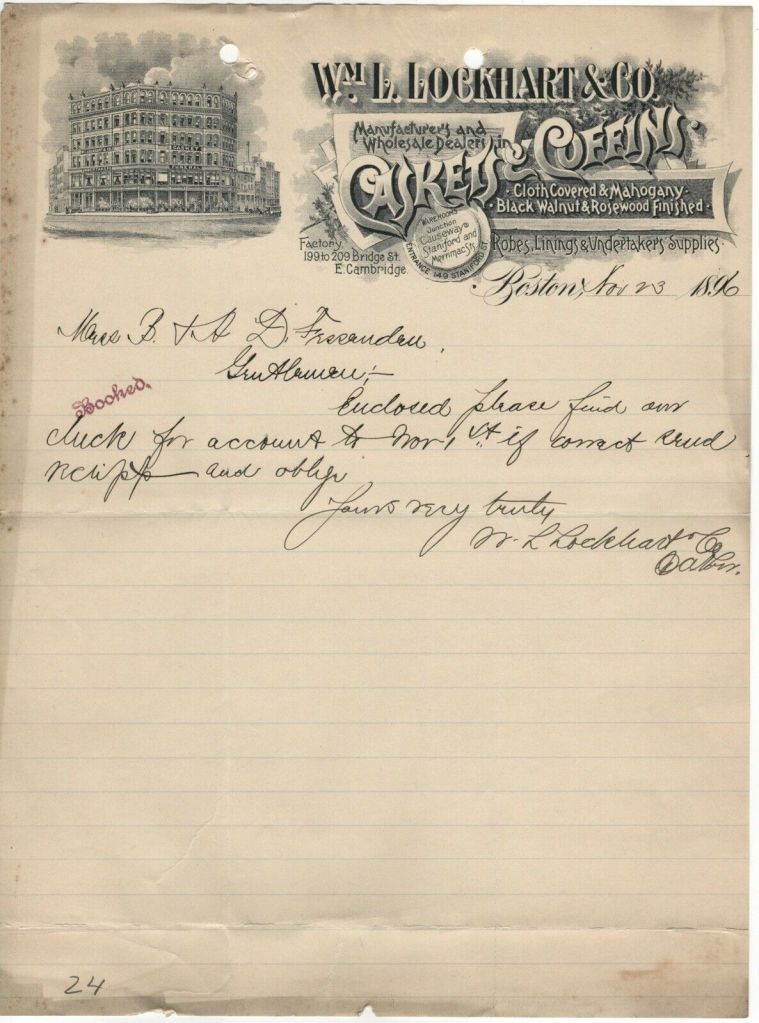 Wm. L. Lockhart & Co.
Manufacturers and
Wholesale Dealers in
Caskets & Coffins.
Cloth Covered & Mahogany.
Black Walnut & Rosewood Finished.
Robes, Linings & Undertakers' Supplies.
Warerooms
Junction
Causeway
Staniford and
Merrimac Sts.
Entrance 149 Staniford St.
Factory
199 to 209 Bridge St.
E. Cambridge.
Boston, Nov 23 1896
Mess B. & A D. Fessenden,
Gentlemen;—
Booked.
Enclosed please find our
check for account to Nov 1st. if correct send
and oblige
Yours very truly,
W. L Lockhart & Co
24